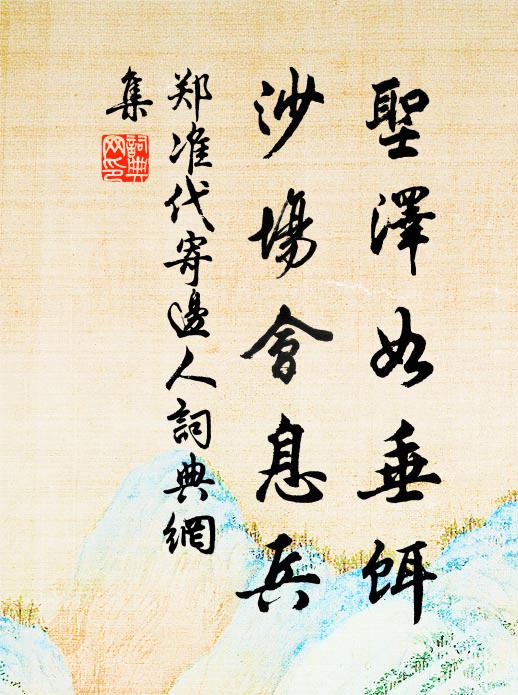 聖澤如垂餌
沙場會息兵
郑准代寄邊人詞典網
集
詞典網印